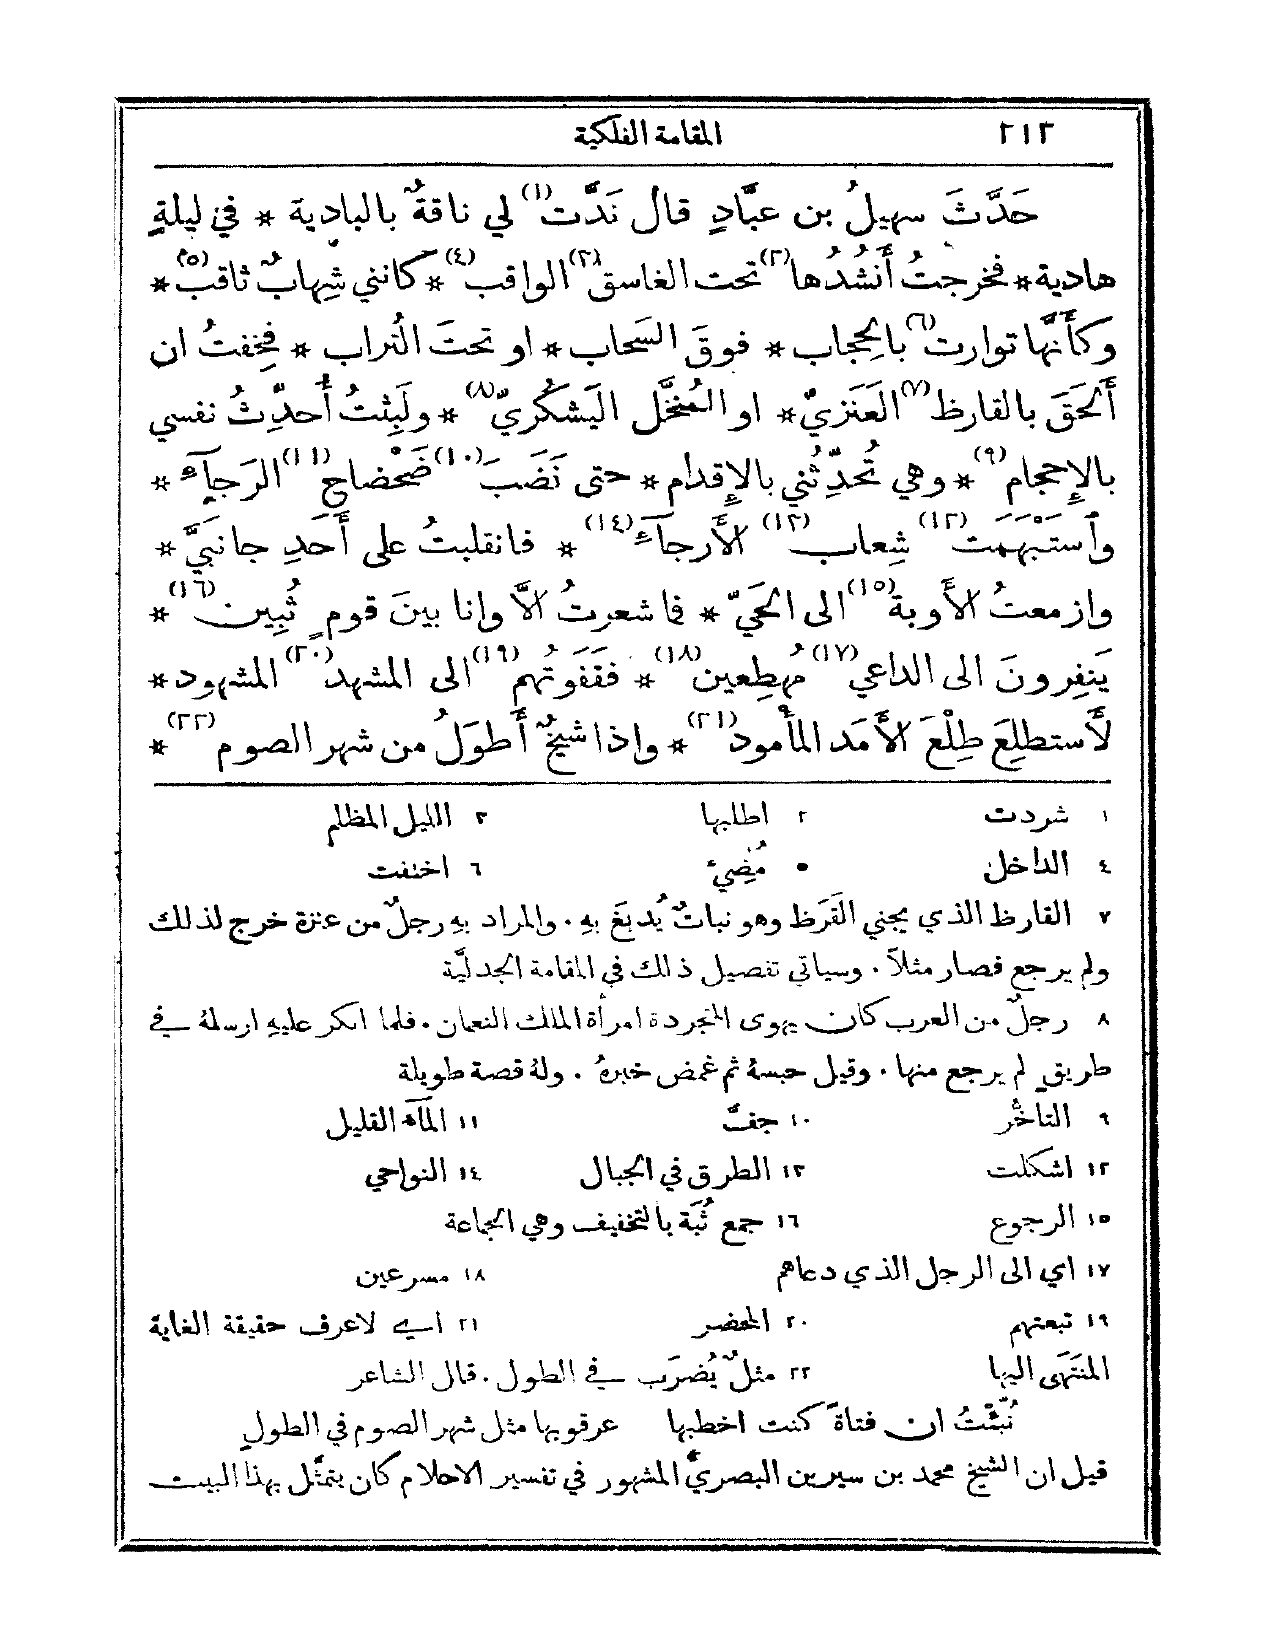 المقامة الفلكية ٢١٣
حَدَّثَ سهيلُ بن عبَّادٍ قال نَدَّت(١) لي ناقةٌ بالبادية * في ليلةٍ
هادية * فخرجتُ أَنشُدُها(٢) تحت الغاسق(٣) الواقب(٤) * كانني شِهابٌ ثاقب(٥) *
وكأَنَّها توارت(٦) بالحِجاب * فوقَ السَحاب * او تحتَ التُراب * فخِفتُ ان
أَلحَقَ بالقارظ(٧) العَنَزيّ * او المُنخَّل اليَشكُريّ(٨) * ولَبِثتُ أُحدِّثُ نفسي
بالإِحجام(٩) * وهي تُحدِّثُني بالإِقدام * حتى نَضَبَ(١٠) ضَحْضاح(١١) الرَجآءِ *
وأَستَبهَمَت(١٢) شِعاب(١٣) الأَرجآءِ(١٤) * فانقلبتُ على أَحَدِ جانبيَّ *
وازمعتُ الأَوبة(١٥) الى الحَيّ * فما شعرتُ الَّا وانا بينَ قومٍ ثُبِين(١٦) *
يَنفِرونَ الى الداعي(١٧) مُهطِعين(١٨) * فقَفَوتُهم(١٩) الى المشهد(٢٠) المشهود *
لأَستطلِعَ طِلْعَ الأَمَد المأْمود(٢١) * واذا شيخٌ أَطولُ من شهر الصوم(٢٢) *
١ شردت ٢ اطلبها ٣ الليل المظلم
٤ الداخل ٥ مُضِيءٌ ٦ اختفت
٧ القارظ الذي يجني القَرَظ وهو نباتٌ يُدبَغ بهِ. والمراد بهِ رجلٌ من عنزة خرج لذلك
ولم يرجع فصار مثلاً. وسياتي تفصيل ذلك في المقامة الجدليَّة
٨ رجلٌ من العرب كان يهوى المتجردة امرأَة الملك النعمان. فلما انكر عليهِ ارسلهُ في
طريقٍ لم يرجع منها. وقيل حبسهُ ثم غمض خبرهُ. ولهُ قصة طويلة
٩ التاخُّر ١٠ جفَّ ١١ المآء القليل
١٢ اشكلت ١٣ الطرق في الجبال ١٤ النواحي
١٥ الرجوع ١٦ جمع ثُبَة بالتخفيف وهي الجماعة
١٧ اي الى الرجل الذي دعاهم ١٨ مسرعين
١٩ تبعتهم ٢٠ المحضر ٢١ اي لاعرف حقيقة الغاية
المنتَهَى اليها ٢٢ مثلٌ يُضرَب في الطول. قال الشاعر
نُبِّئتُ ان فتاةً كنت اخطبها عرقوبها مثل شهر الصوم في الطولِ
قيل ان الشيخ محمد بن سيرين البصريَّ المشهور في تفسير الاحلام كان يتمثَّل بهذا البيت